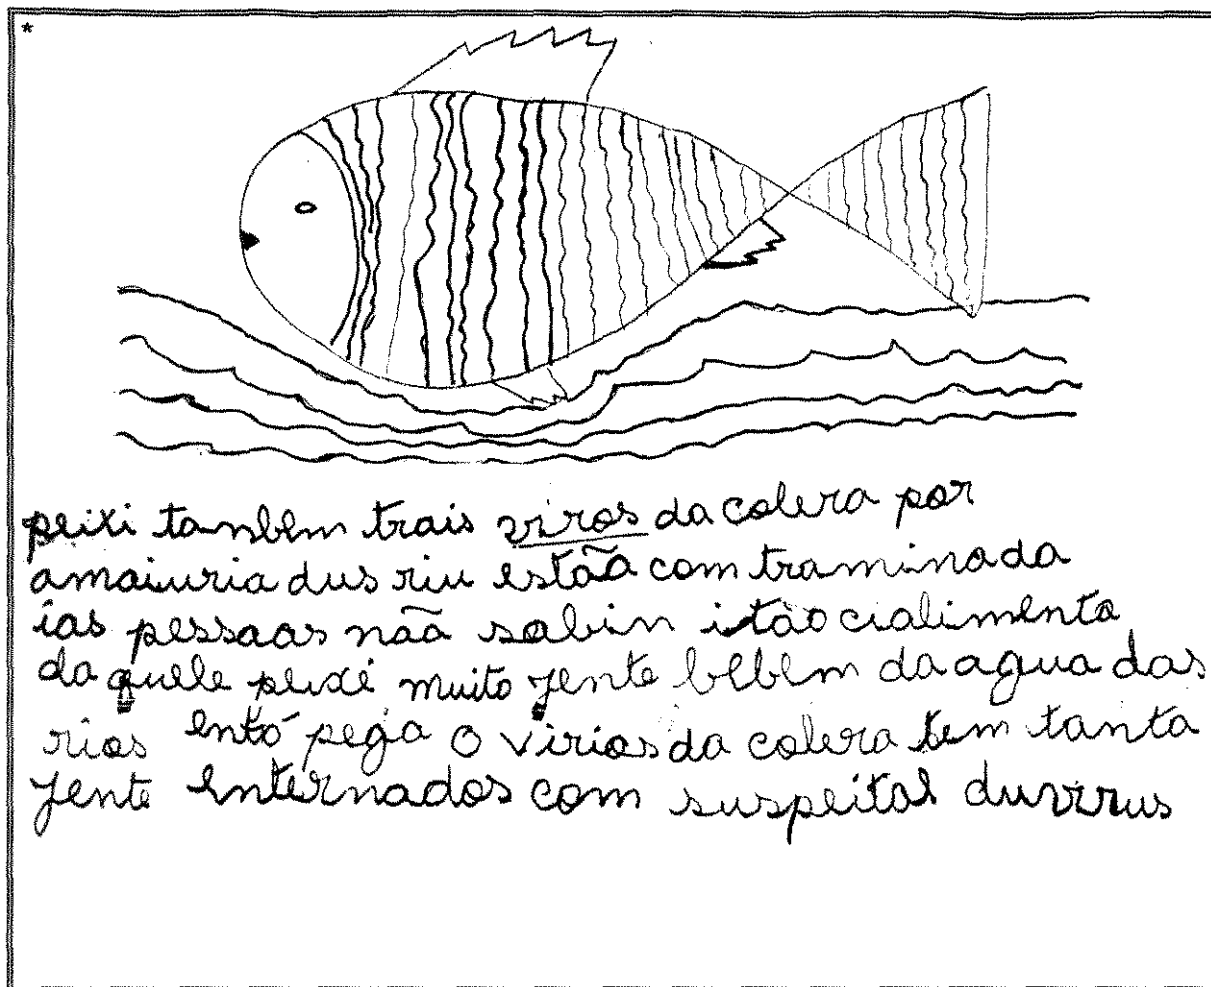 *
peixi tanbem trais viros da colera por
amaiuria dus riu estão com traminada
ias pessoas não sabin itão cialimenta
da quele peixi muito jente bebem da agua dos
rios entó pega o virios da colera tem tanta
jente enternados com suspeital duvirus